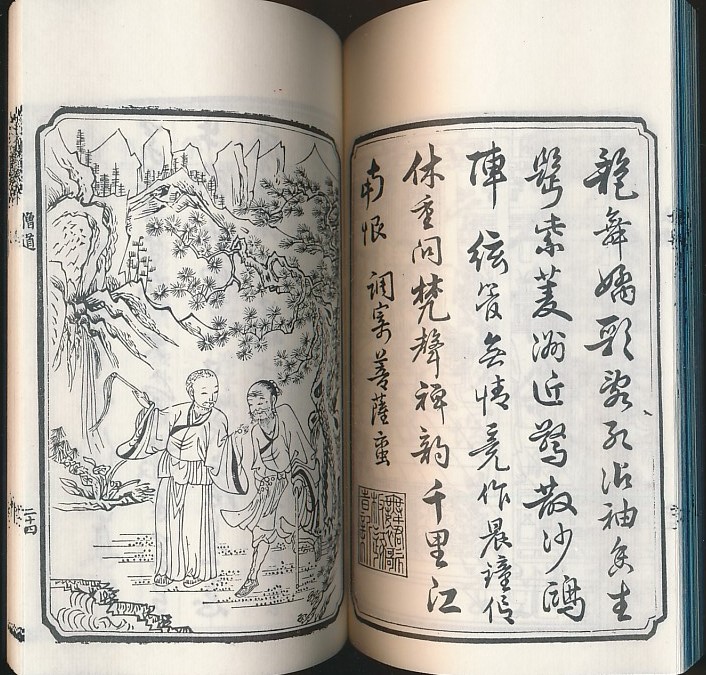 艷舞嬌歌沾袖香生
紫菱洲近驚散沙鷗
陣 絃管無情竟作晨鐘信
休重問梵聲禪韵千里江
南恨 調寄菩薩蠻
僧道
二十四